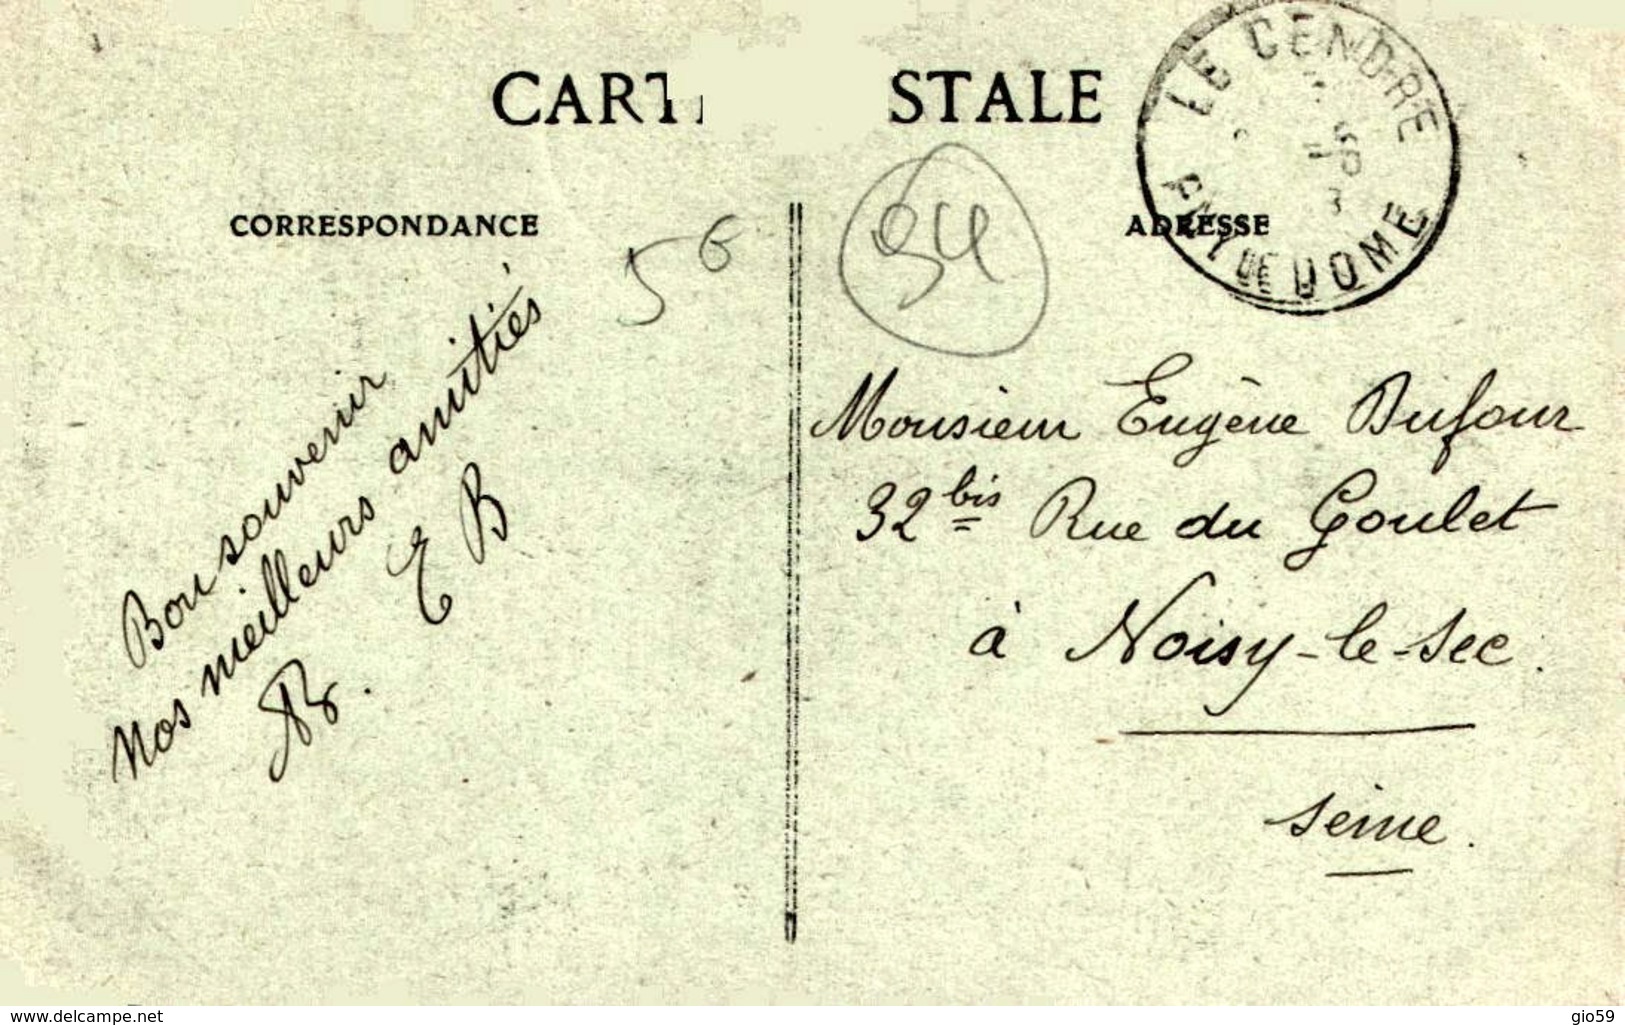 CARTE STALE
CORRESPONDANCE
ADRESSE
LE CENDRE
PUY DE DOME
5€
94
Bon souvenir
Nos meilleurs amitiés
E B
Monsieur Eugène Dufour
32 bis Rue du Goulet
à Noisy-le-Sec.
Seine.
www.delcampe.net
gio59